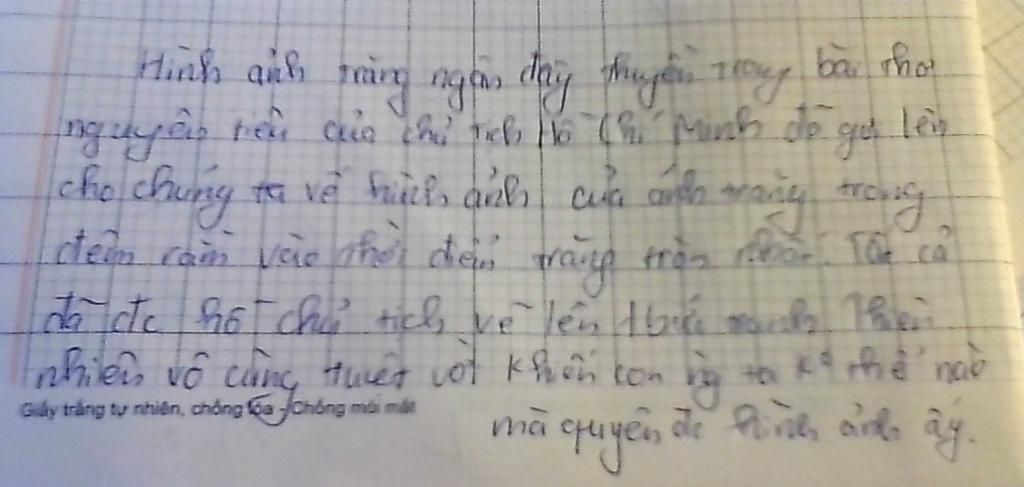 Hình ảnh trăng ngân đầy thuyền trong bài thơ
nguyên tiêu của chủ tịch Hồ Chí Minh đã gợi lên
cho chúng ta về hình ảnh của ánh trăng trong
đêm rằm vào thời điểm trăng tròn nhất. Tất cả
đã đc hồ chủ tịch vẽ lên 1 bức tranh thiên
nhiên vô cùng tuyệt vời khiến con ng ta k thể nào
Giấy trắng tự nhiên, chống lóa - Chống mỏi mắt
mà quyên đc hình ảnh ấy.